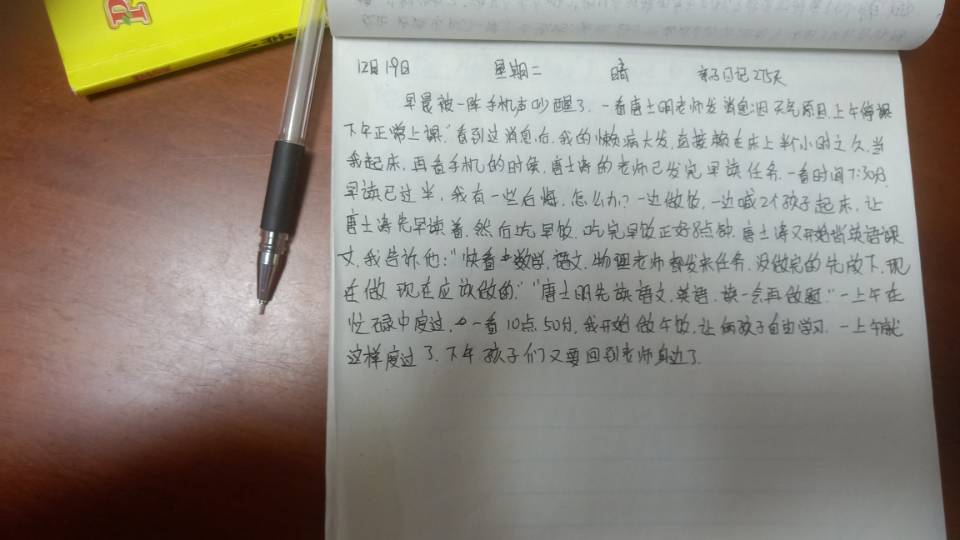 P
12月19日 星期二 晴 亲子日记275天
早晨被一阵手机声吵醒了.一看唐士明老师发消息:因天气原因,上午停课
下午正常上课."看到过消息后,我的懒病大发,直接赖在床上半个小时之久,当
我起床,再看手机的时候,唐士涛的老师已发完早读任务.一看时间7:30分,
早读已过半,我有一些后悔,怎么办?一边做饭,一边喊2个孩子起床,让
唐士涛先早读着,然后吃早饭.吃完早饭正好8点钟,唐士涛又开始背英语课
文,我告诉他:"快看 数学,语文,物理老师都发来任务,没做完的先放下,现
在做 现在应该做的.""唐士明先读语文,英语,读一会再做题."一上午在
忙碌中度过, 一看10点50分,我开始做午饭,让俩孩子自由学习.一上午就
这样度过了.下午孩子们又要回到老师身边了.